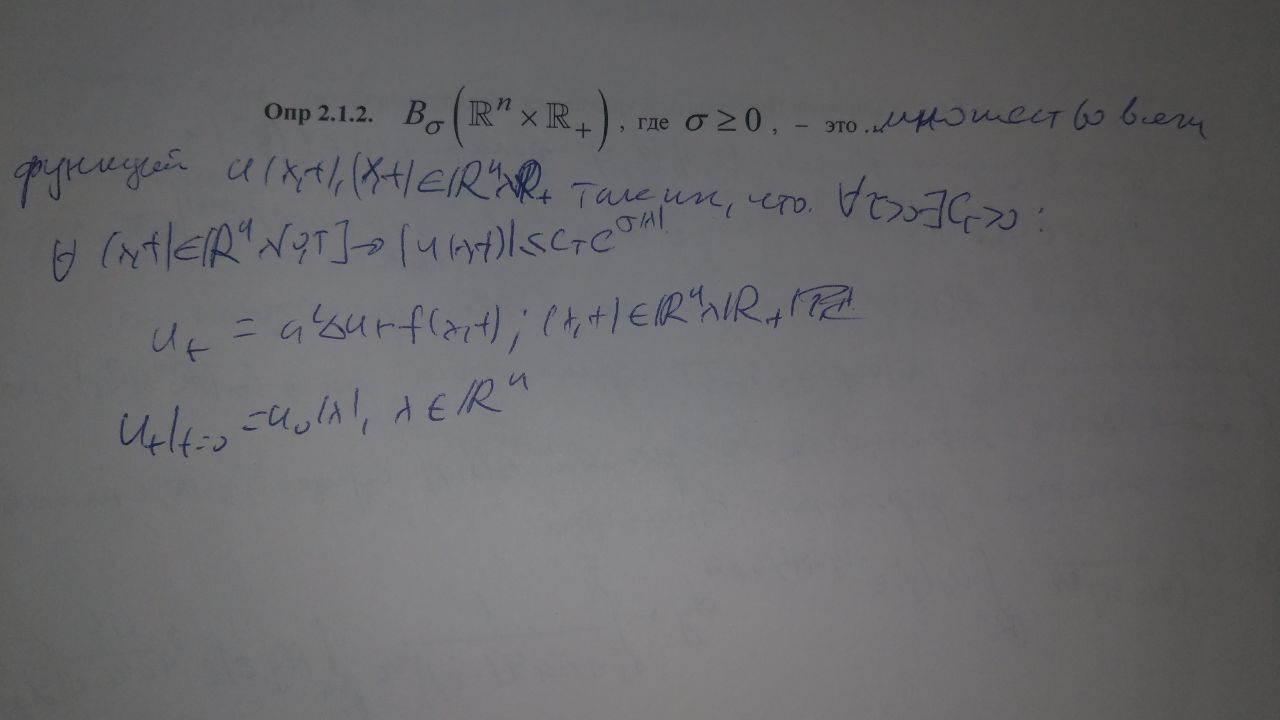 Опр 2.1.2. B_σ(ℝⁿ × ℝ₊), где σ ≥ 0, – это ... множество всех
функций u(x,t), (x,t) ∈ ℝⁿ×ℝ₊ таких, что. ∀T>0 ∃C_T>0 :
∀ (x,t) ∈ ℝⁿ×[0,T] → |u(x,t)| ≤ C_T e^{σ|x|}
u_t = a²Δu + f(x,t); (x,t) ∈ ℝⁿ×ℝ₊
u_t|_{t=0} = u₀(x), x ∈ ℝⁿ